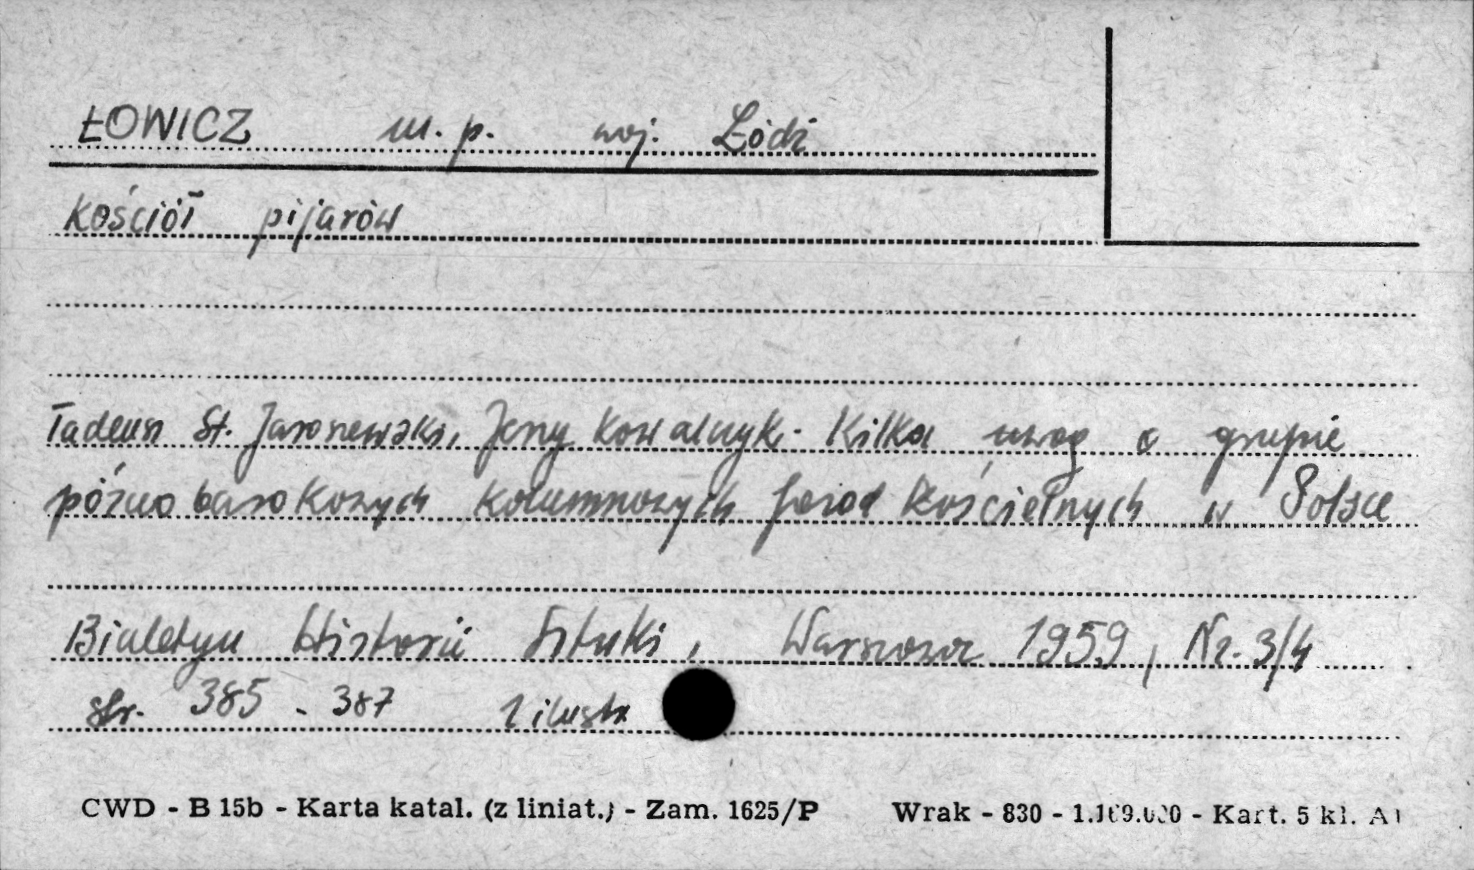 ŁOWICZ m. p. woj. Łódź
Kościół pijarów
Tadeusz St. Jaroszewski, Jerzy Kowalczyk. Kilka uwag o grupie
późno barokowych kolumnowych fasad kościelnych w Polsce
Biuletyn Historii Sztuki, Warszawa 1959, Nr. 3/4
str. 385 - 387 1 ilustr
CWD - B 15b - Karta katal. (z liniat.) - Zam. 1625/P Wrak - 830 - - Kart. 5 kl.